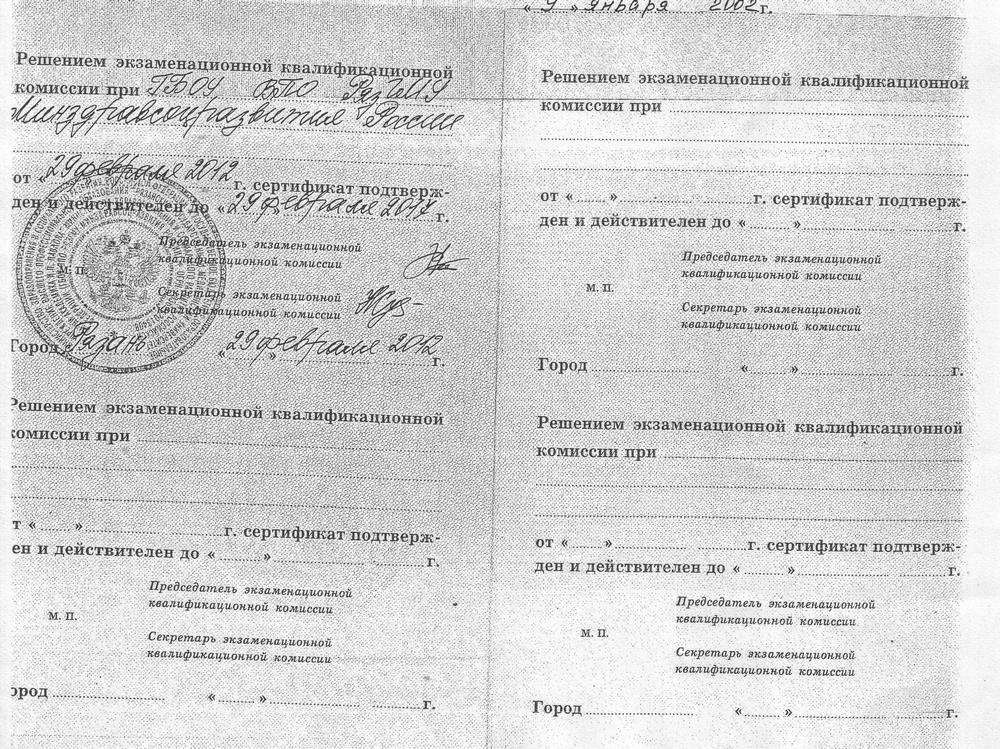 « 9 » января 2002 г.
Решением экзаменационной квалификационной
комиссии при ГБОУ ВПО РязГМУ
Минздравсоцразвития России
от «29 февраля 2012 г. сертификат подтверж-
ден и действителен до «29» февраля 2017 г.
Председатель экзаменационной
квалификационной комиссии
м. п.
Секретарь экзаменационной
квалификационной комиссии
Город Рязань «29 февраля 2012 г.
Решением экзаменационной квалификационной
комиссии при
т « » г. сертификат подтверж-
ен и действителен до « » г.
Председатель экзаменационной
квалификационной комиссии
м. п.
Секретарь экзаменационной
квалификационной комиссии
ород « » г.
Решением экзаменационной квалификационной
комиссии при
от « » г. сертификат подтверж-
ден и действителен до « » г.
Председатель экзаменационной
квалификационной комиссии
м. п.
Секретарь экзаменационной
квалификационной комиссии
Город « » г.
Решением экзаменационной квалификационной
комиссии при
от « » г. сертификат подтверж-
ден и действителен до « » г.
Председатель экзаменационной
квалификационной комиссии
м. п.
Секретарь экзаменационной
квалификационной комиссии
Город « » г.